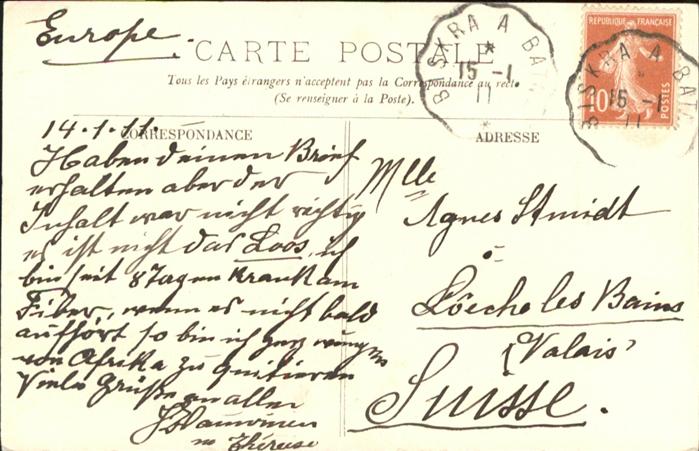 Europe.
CARTE POSTALE
Tous les Pays étrangers n'acceptent pas la Correspondance au recto
(Se renseigner à la Poste).
BISKRA A BAT
15 -1
11
REPUBLIQUE FRANÇAISE
10
POSTES
BISKRA A BAT
15 -1
11
CORRESPONDANCE
14.1.11.
Haben deinen Brief
erhalten aber der
Inhalt war nicht richtig
es ist nicht das Loos, ich
bin seit 8 Tagen Krank am
Fiber, wenn es nicht bald
aufhört so bin ich gezwungen
von Afrika zu quitieren
Viele Grüße an allen
Thérèse
ADRESSE
Mlle
Agnes Stmidt
à
Lôeche les Bains
(Valais)
Suisse.